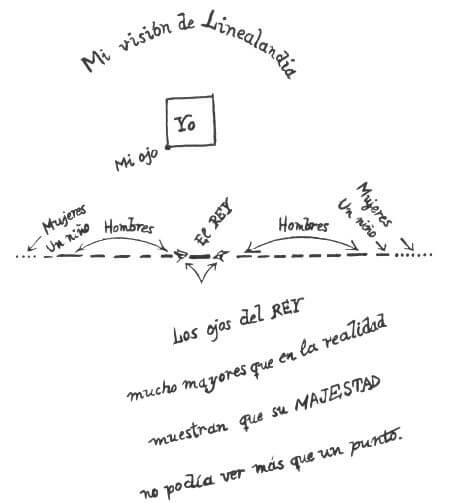 Mi visión de Linealandia
Yo
Mi ojo
Mujeres
Un niño
Hombres
El REY
Hombres
Mujeres
Un niño
Los ojos del REY
mucho mayores que en la realidad
muestran que su MAJESTAD
no podía ver más que un punto.